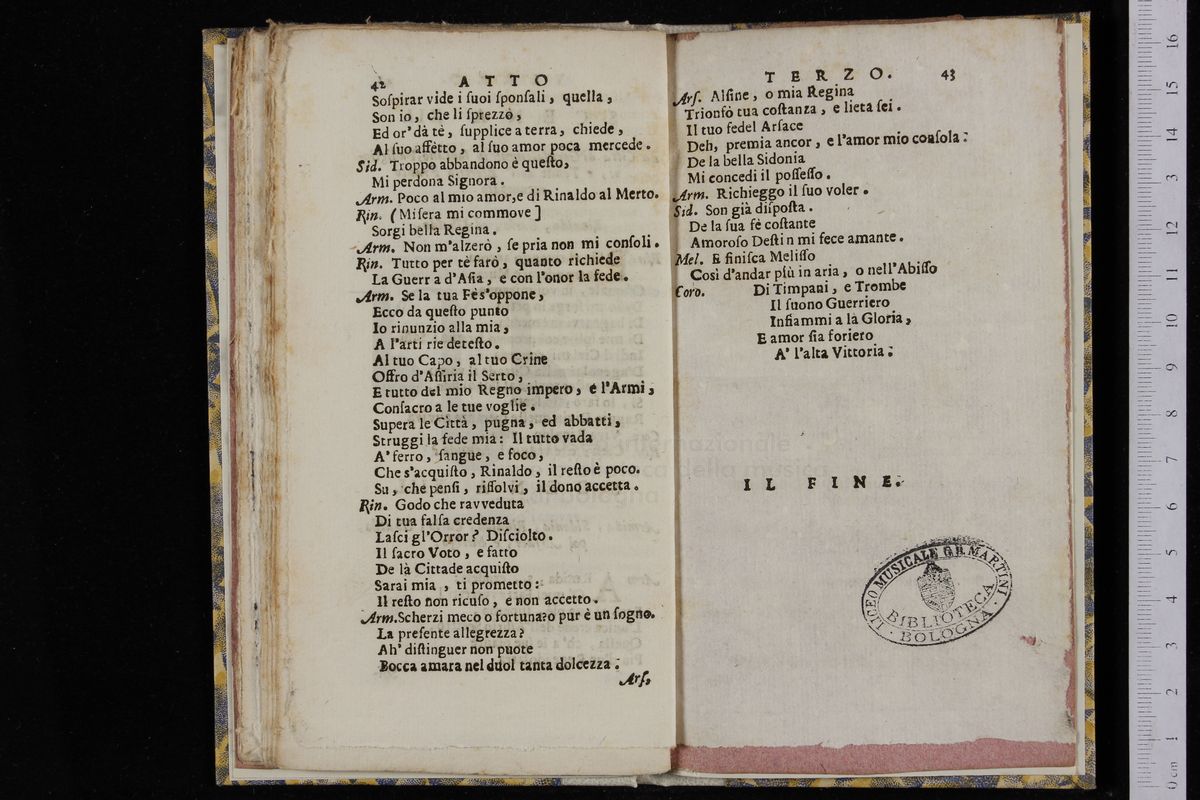 42 ATTO
Soſpirar vide i ſuoi ſponſali, quella,
Son io, che li ſprezzò,
Ed or' dà tè, ſupplice a terra, chiede,
Al ſuo affètto, al ſuo amor poca mercede.
Sid. Troppo abbandono è queſto,
Mi perdona Signora.
Arm. Poco al mio amor,e di Rinaldo al Merto.
Rin. (Miſera mi commove]
Sorgi bella Regina.
Arm. Non m'alzerò, ſe pria non mi conſoli.
Rin. Tutto per tè farò, quanto richiede
La Guerr a d'Aſia, e con l'onor la fede.
Arm. Se la tua Fè s'oppone,
Ecco da queſto punto
Io rinunzio alla mia,
A l'arti rie deteſto.
Al tuo Capo, al tuo Crine
Offro d'Aſſiria il Serto,
E tutto del mio Regno impero, e l'Armi,
Conſacro a le tue voglie.
Supera le Città, pugna, ed abbatti,
Struggi la fede mia: Il tutto vada
A' ferro, ſangue, e foco,
Che s'acquiſto, Rinaldo, il reſto è poco.
Su, che penſi, riſſolvi, il dono accetta.
Rin. Godo che ravveduta
Di tua falſa credenza
Laſci gl'Orror? Diſciolto.
Il ſacro Voto, e fatto
De là Cittade acquiſto
Sarai mia, ti prometto:
Il reſto non ricuſo, e non accetto.
Arm.Scherzi meco o fortuna?o pur è un ſogno.
La preſente allegrezza?
Ah' diſtinguer non puote
Bocca amara nel duol tanta dolcezza.
Arſ.
TERZO. 43
Arſ. Alfine, o mia Regina
Trionfò tua coſtanza, e lieta ſei.
Il tuo fedel Arſace
Deh, premia ancor, e l'amor mio conſola:
De la bella Sidonia
Mi concedi il poſſeſſo.
Arm. Richieggo il ſuo voler.
Sid. Son già diſpoſta.
De la ſua fè coſtante
Amoroſo Deſti n mi fece amante.
Mel. E finiſca Meliſſo
Così d'andar più in aria, o nell'Abiſſo
Coro. Di Timpani, e Trombe
Il ſuono Guerriero
Infiammi a la Gloria,
E amor ſia foriero
A' l'alta Vittoria:
IL FINE.
LICEO MUSICALE G.B. MARTINI
BIBLIOTECA
BOLOGNA
internazionale
della musica